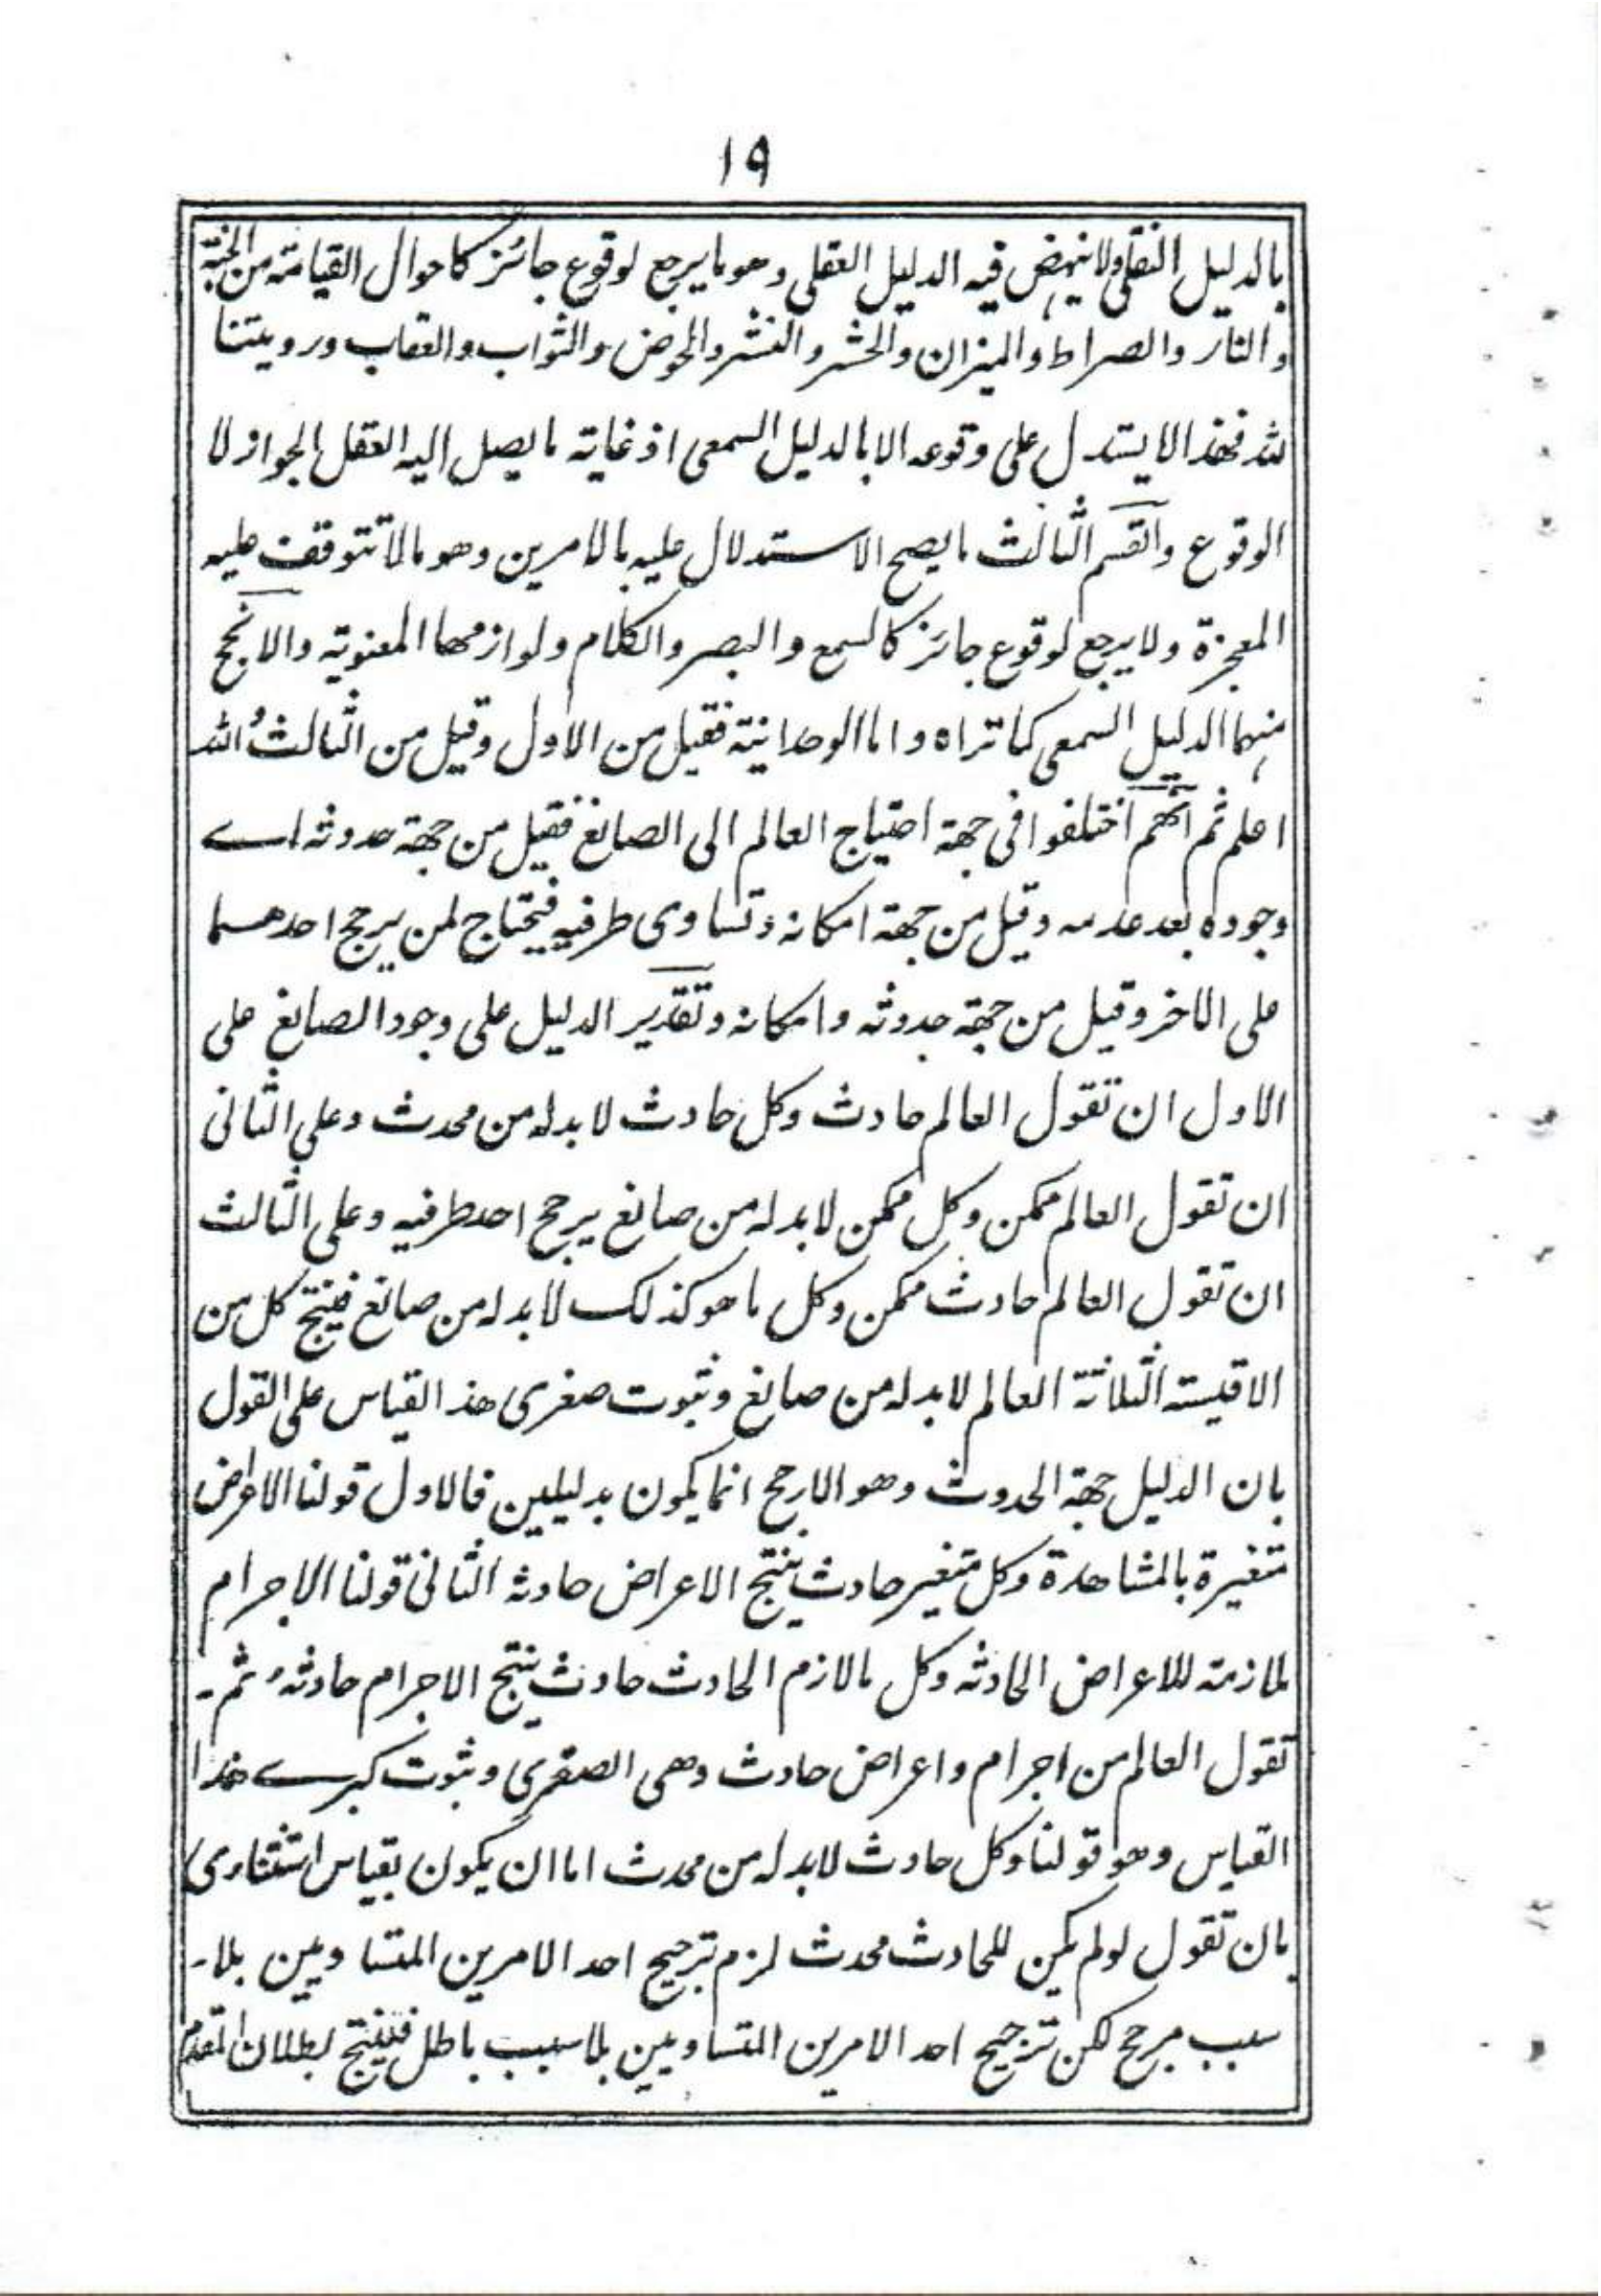 ۱۹
بالدليل النقلى ولا ينهض فيه الدليل العقلى وهو ما يرجع لوقوع جائز كاحوال القيامة من الجنة
والنار والصراط والميزان والحشر والنشر والحوض والثواب والعقاب ورويتنا
لله فهذا لا يستدل على وقوعه الا بالدليل السمعى اذ غاية ما يصل اليه العقل الجواز لا
الوقوع والقسم الثالث ما يصح الاستدلال عليه بالامرين وهو ما لا تتوقف عليه
المعجزة ولا يرجع لوقوع جائز كالسمع والبصر والكلام ولوازمها المعنوية والانجح
منهما الدليل السمعى كما تراه واما الوحدانية فقيل من الاول وقيل من الثالث والله
اعلم ثم انهم اختلفوا فى جهة احتياج العالم الى الصانع فقيل من جهة حدوثه اے
وجوده بعد عدمه وقيل من جهة امكانه وتساوى طرفيه فيحتاج لمن يرجح احدهما
على الاخر وقيل من جهة حدوثه وامكانه وتقرير الدليل على وجود الصانع على
الاول ان تقول العالم حادث وكل حادث لا بد له من محدث وعلى الثانى
ان تقول العالم ممكن وكل ممكن لا بد له من صانع يرجح احد طرفيه وعلى الثالث
ان تقول العالم حادث ممكن وكل ما هو كذلك لا بد له من صانع فينتج كل من
الاقيسته الثلاثة العالم لا بد له من صانع وثبوت صغرى هذ القياس على القول
بان الدليل جهة الحدوث وهو الارجح انما يكون بدليلين فالاول قولنا الاعراض
متغيرة بالمشاهدة وكل متغير حادث ينتج الاعراض حادثه الثانى قولنا الاجرام
ملازمته للاعراض الحادثه وكل ما لازم الحادث حادث ينتج الاجرام حادثة ثم
تقول العالم من اجرام واعراض حادث وهى الصغرى وثبوت كبرے هذا
القياس وهو قولنا وكل حادث لا بد له من محدث اما ان يكون بقياس استثنارى
بان تقول لو لم يكن للحادث محدث لزم ترجيح احد الامرين المتساويين بلا
سبب مرجح لكن ترجيح احد الامرين المتساويين بلا سبب باطل فينتج بطلان المقدم